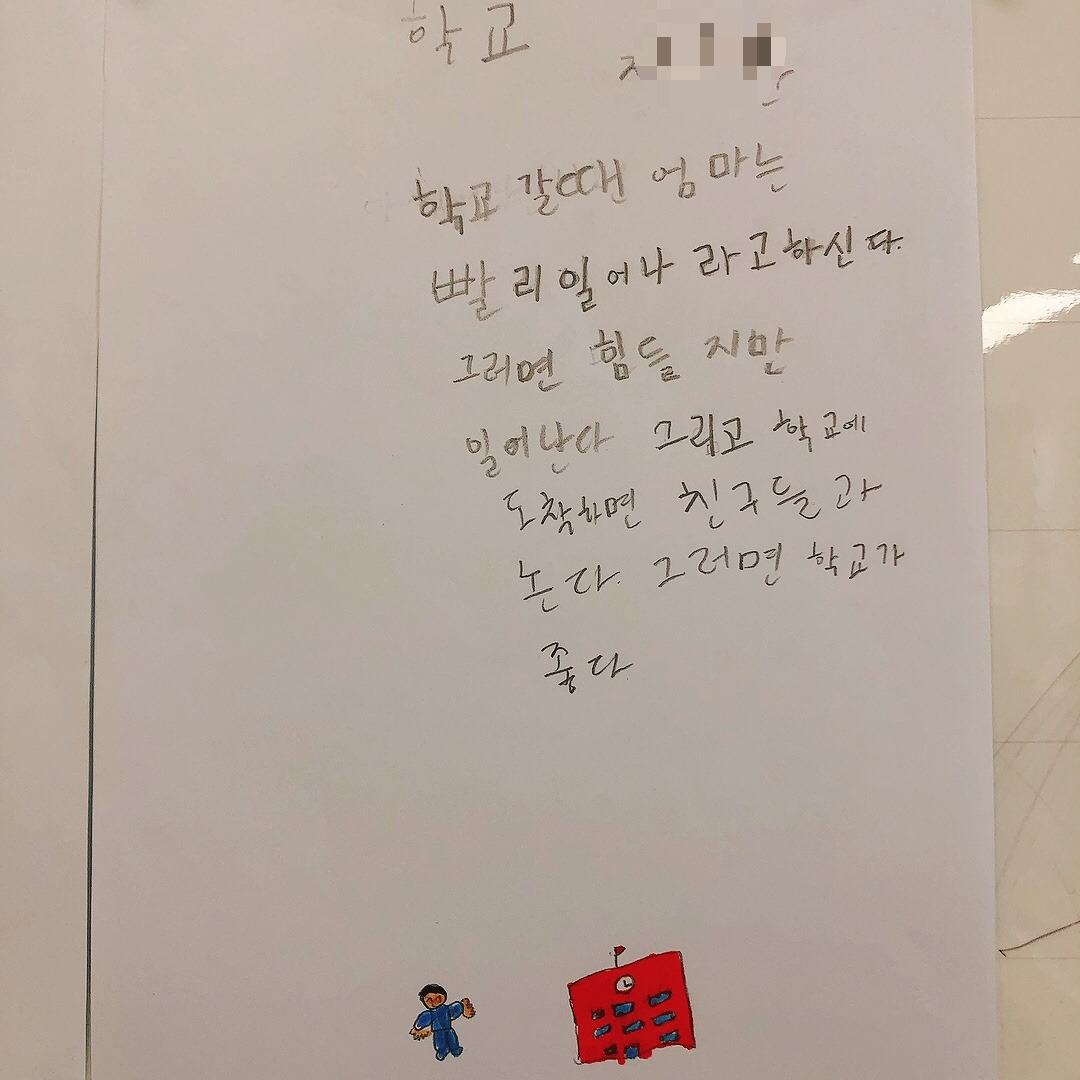 학교
학교 갈땐 엄마는
빨리일어나 라고하신다.
그러면 힘들지만
일어난다 그리고 학교에
도착하면 친구들과
논다. 그러면 학교가
좋다